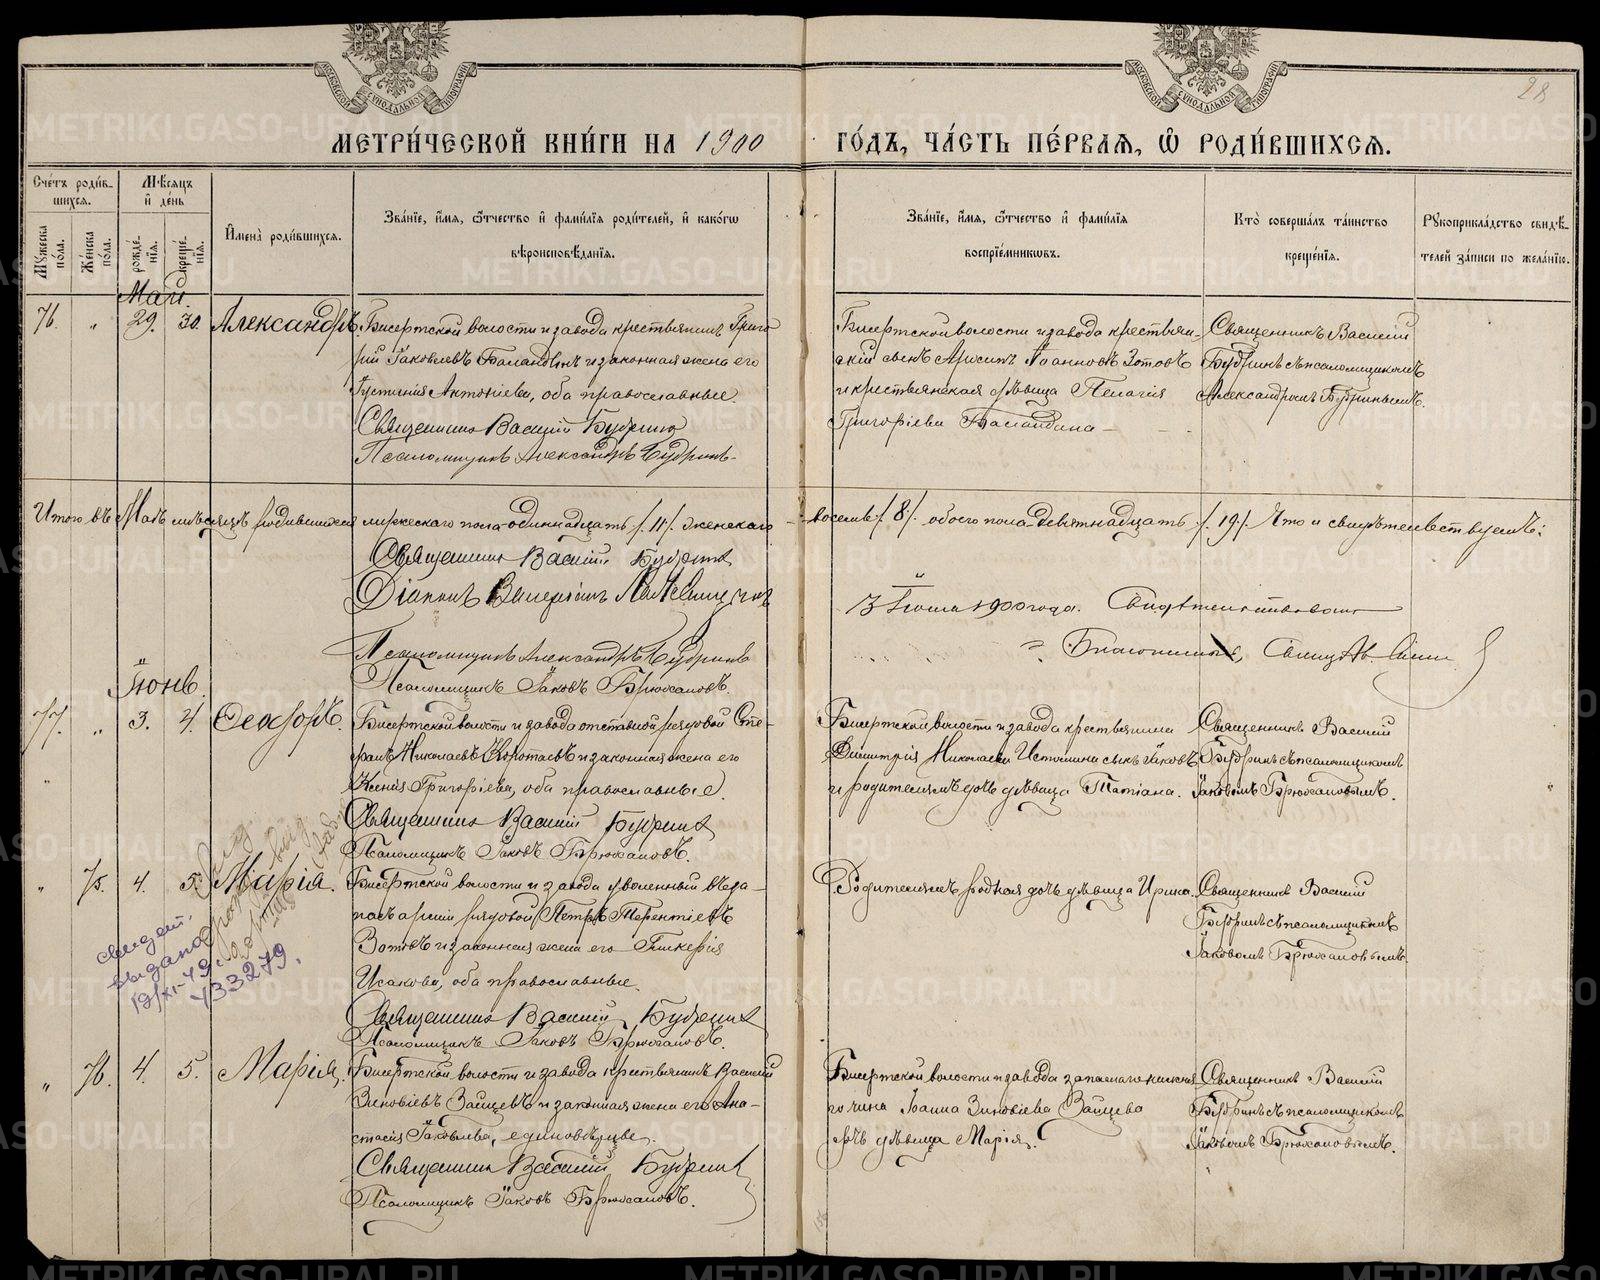 МОСКОВСКОЙ СѴНОДАЛЬНОЙ ТИПОГРАФІИ
МОСКОВСКОЙ СѴНОДАЛЬНОЙ ТИПОГРАФІИ
28
МЕТРИ́ЧЕСКОЙ КНИ́ГИ НА 1900
ГО́ДЪ, ЧА́СТЬ ПЕ́РВАЯ, Ѽ РОДИ́ВШИХСЯ.
Сче́тъ роди́в-
шихся.
Мѣсяцъ
и҆ де́нь
Му́жеска по́ла.
Же́нска по́ла.
рожде́-
нїя.
креще́-
нїя.
И҆мена̀ роди́вшихся.
Зва́нїе, и҆́мя, ѻ҆́тчество и҆ фами́лїя роди́телей, и҆ како́гѡ
вѣроисповѣ́данїя.
Зва́нїе, и҆́мя, ѻ҆́тчество и҆ фами́лїя
воспрїе́мникѡвъ.
Кто̀ соверша́лъ та́инство
креще́нїя.
Рукоприкла́дство свидѣ́-
телей за́писи по жела́нїю.
Май.
76. „ 29. 30. Александръ.
Бисертской волости и завода крестьянинъ Григо
рій Іаковлевъ Баландинъ и законная жена его
Іустинія Антоніева, оба православные.
Священникъ Василій Будринъ
Псаломщикъ Александръ Будринъ
Бисертской волости и завода крестьян-
скій сынъ Іоанновъ Зотовъ
и крестьянская дѣвица Пелагія
Григоріева Баландина
Священникъ Василій
Будринъ съ псаломщикомъ
Александромъ Будринымъ.
Итого въ Маѣ мѣсяцѣ родившихся мужескаго пола одиннадцать /11/. женскаго
восемь /8/. обоего пола девятнадцать /19/. Что и свидѣтельствуемъ:
Священникъ Василій Будринъ
Діаконъ Валеріанъ
Псаломщикъ Александръ Будринъ
Псаломщикъ Іаковъ Брюхановъ.
3 Іюня 1900 года. Свидѣтельствовалъ
Благочинный, Священ.
Іюнь.
77. „ 3. 4. Ѳеодоръ.
Бисертской волости и завода отставной рядовой Сте-
фанъ Николаевъ Коротаевъ и законная жена его
Ксенія Григоріева, оба православные.
Священникъ Василій Будринъ
Псаломщикъ Іаковъ Брюхановъ.
Бисертской волости и завода крестьянина
Димитрія Николаева Истомина сынъ Іаковъ
и родителямъ дочь дѣвица Татіана.
Священникъ Василій
Будринъ съ псаломщикомъ
Іаковомъ Брюхановымъ.
„ 75. 4. 5. Марія.
Бисертской волости и завода уволенный въ за-
пасъ арміи рядовой Петръ Терентіевъ
Зотовъ и законная жена его Гликерія
Исакова, оба православные.
Священникъ Василій Будринъ
Псаломщикъ Іаковъ Брюхановъ.
Родителямъ родная дочь дѣвица Ирина.
Священникъ Василій
Будринъ съ псаломщикомъ
Іаковомъ Брюхановымъ.
свидет.
выдано
19/XI-49
433279.
„ 76. 4. 5. Марія.
Бисертской волости и завода крестьянинъ Василій
Зиновіевъ Зайцевъ и законная жена его Ана-
стасія Іаковлева, единовѣрцы.
Священникъ Василій Будринъ
Псаломщикъ Іаковъ Брюхановъ.
Бисертской волости и завода запаснаго нижня-
го чина Іоанна Зиновіева Зайцева
дочь дѣвица Марія.
Священникъ Василій
Будринъ съ псаломщикомъ
Іаковомъ Брюхановымъ.
METRIKI.GASO-URAL.RU